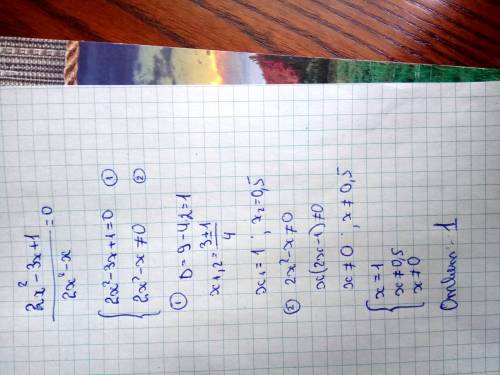 2x² - 3x + 1
2x² - x
= 0
{ 2x² - 3x + 1 = 0 ①
2x² - x ≠ 0 ②
① D = 9 - 4·2 = 1
x₁,₂ = (3 ± 1)/4
x₁ = 1 ; x₂ = 0,5
② 2x² - x ≠ 0
x(2x - 1) ≠ 0
x ≠ 0 ; x ≠ 0,5
{ x = 1
x ≠ 0,5
x ≠ 0
Ответ: 1